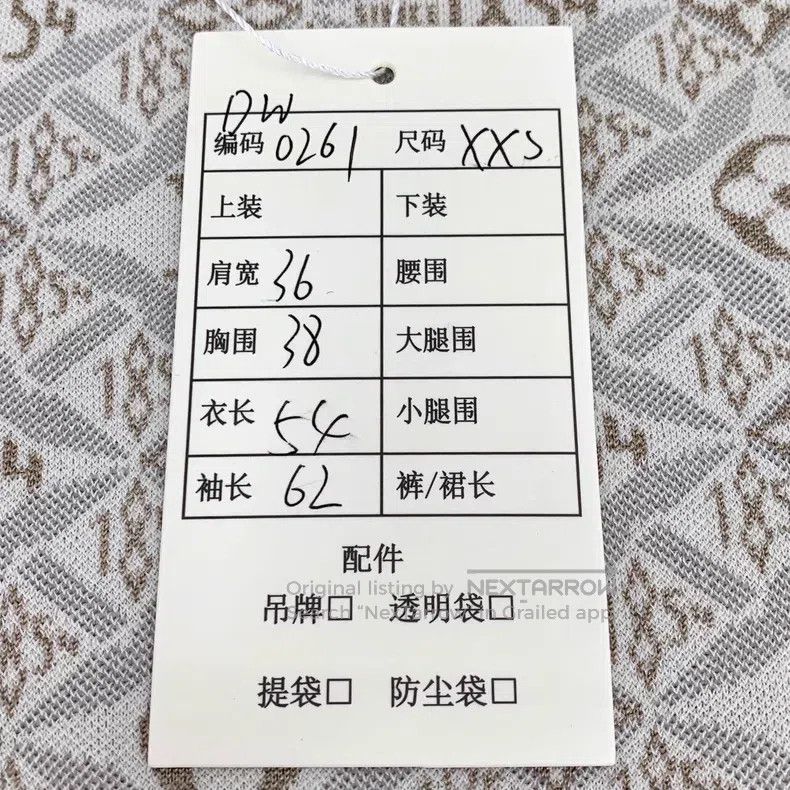 DW
编码 0261 尺码 XXS
上装 下装
肩宽 36 腰围
胸围 38 大腿围
衣长 54 小腿围
袖长 62 裤/裙长
配件
Original listing by NEXTARROW
吊牌□ 透明袋□
Grailed app
提袋□ 防尘袋□